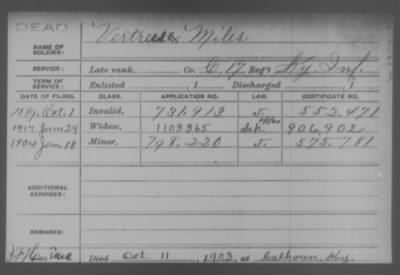 DEAD
NAME OF SOLDIER: Vertrees Miles
SERVICE: Late rank, Co. G, 17 Reg't Ky. Inf.
TERM OF SERVICE: Enlisted , 1 Discharged , 1
DATE OF FILING. CLASS. APPLICATION NO. LAW. CERTIFICATE NO.
1889 Oct. 1 Invalid, 731,913 J. 552.471
1917 June 29 Widow, 1103365 906,902
1904 Jan 18 Minor, 798.220 J. 575.781
ADDITIONAL SERVICES:
REMARKS:
Died Oct 11, 1903, at Calhoun, Ky.